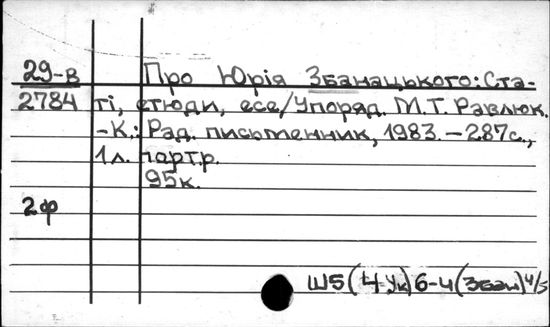 29-в Про Юрія Збанацького: Ста-
2784 ті, етюди, есе/Упоряд. М.Т. Равлюк.
-К.: Рад. письменник, 1983. – 287с.,
1л. портр.
95к.
2ф
Ш5(4Ук)6-4(Збан)4/5